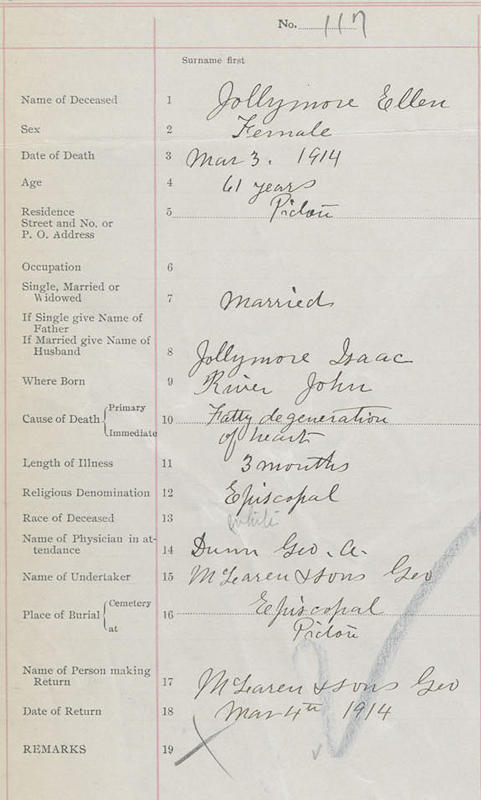 No. 117
Surname first
Name of Deceased 1 Jollymore Ellen
Sex 2 Female
Date of Death 3 Mar 3. 1914
Age 4 61 years
Residence 5 Pictou
Street and No. or
P. O. Address
Occupation 6
Single, Married or
Widowed 7 Married
If Single give Name of
Father
If Married give Name of
Husband 8 Jollymore Isaac
Where Born 9 River John
Cause of Death { Primary
Immediate 10 Fatty degeneration
of heart
Length of Illness 11 3 months
Religious Denomination 12 Episcopal
Race of Deceased 13 white
Name of Physician in at-
tendance 14 Dunn Geo. A.
Name of Undertaker 15 McLaren & sons Geo
Place of Burial { Cemetery
at 16 Episcopal
Pictou
Name of Person making
Return 17 McLaren & sons Geo
Date of Return 18 Mar 4th 1914
REMARKS 19